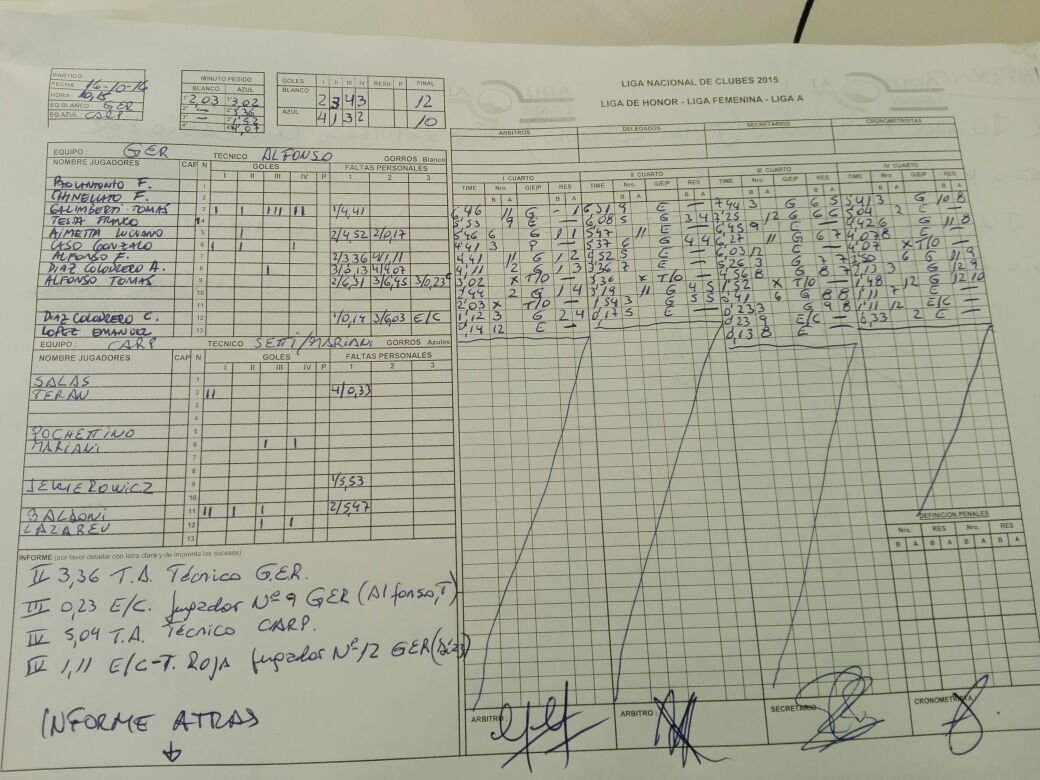 LIGA NACIONAL DE CLUBES 2015
LIGA DE HONOR - LIGA FEMENINA - LIGA A
PARTIDO
FECHA : 16-10-16
HORA : 10,15
EQ.BLANCO : GER
EQ.AZUL : CARP
MINUTO PEDIDO
BLANCO AZUL
1° 2,03 1° 3,02
2° — 2° 3,36
3° — 3° 1,52
4° 4,07
GOLES I II III IV RESU P FINAL
BLANCO 2 3 4 3 12
AZUL 4 1 3 2 10
ARBITROS DELEGADOS SECRETARIOS CRONOMETRISTAS
EQUIPO : GER TECNICO ALFONSO GORROS Blanco
NOMBRE JUGADORES CAP N GOLES FALTAS PERSONALES
I II III IV P 1 2 3
F. 1
CHINELLATO F.
GALIMBERTI TOMAS 3 I I III II 1/4,41
TESTA FRANCO 4
AIMETTA LUCIANO 5 I 2/4,52 2/0,17
CASO GONZALO 6 I I I
ALFONSO F. 7 2/3,36 4/1,11
DIAZ COLODRERO A. 8 I 3/0,13 4/4,07
ALFONSO TOMAS 9 2/6,31 3/6,45 3/0,23
10
11
DIAZ COLODRERO C. 12 1/0,14 3/6,03 E/C
LOPEZ EMANUEL 13
EQUIPO : CARP TECNICO SETTI/MARIANI GORROS Azules
NOMBRE JUGADORES CAP N GOLES FALTAS PERSONALES
I II III IV P 1 2 3
SALAS 1
TERAN 2 II 4/0,33
3
4
POCHETTINO 5
MARIANI 6 I I
7
8
JEWIEROWICZ 9 1/5,53
10
BALDONI 11 II I I 2/5,47
LAZAREU 12 I I
13
I CUARTO II CUARTO III CUARTO IV CUARTO
TIME Nro. G/E/P RES TIME Nro. G/E/P RES TIME Nro. G/E/P RES TIME Nro. G/E/P RES
B A B A B A B A B A B A B A B A
6,46 11 G - 1 6,31 9 E — 7,44 3 G 6 5 5,41 3 G 10 8
5,53 9 E — 6,08 5 G 3 4 7,25 12 G 6 6 5,04 2 E —
5,46 6 G 1 1 5,47 11 E — 6,45 9 E — 4,42 6 G 11 8
4,41 3 P — 5,37 6 G 4 4 6,27 11 G 6 7 4,07 8 E —
4,41 11 G 1 2 4,52 5 E — 6,03 12 E — 4,07 X T/O —
4,11 2 G 1 3 3,36 7 E — 5,26 3 G 7 7 3,50 6 G 11 9
3,02 X T/O — 3,36 X T/O — 4,56 8 G 8 7 2,13 3 G 12 9
2,44 2 G 1 4 3,19 11 G 4 5 1,52 X T/O — 1,48 12 G 12 10
2,03 X T/O — 1,54 3 G 5 5 0,41 6 G 8 8 1,11 7 E —
1,12 3 G 2 4 0,17 5 E — 0,23 3 G 9 8 1,11 12 E/C —
0,14 12 E — 0,23 9 E/C — 0,33 2 E —
0,13 8 E —
DEFINICION PENALES
Nro. RES Nro. RES
B A B A B A B A
INFORME (por favor detallar con letra clara y de imprenta los sucesos)
II 3,36 T.A. Técnico GER.
III 0,23 E/C. Jugador Nº 9 GER (Alfonso,T)
IV 5,04 T.A. Técnico CARP.
IV 1,11 E/C-T. Roja Jugador Nº 12 GER (Diaz)
INFORME ATRAS
ARBITRO : ARBITRO : SECRETARIO : CRONOMETRISTA :